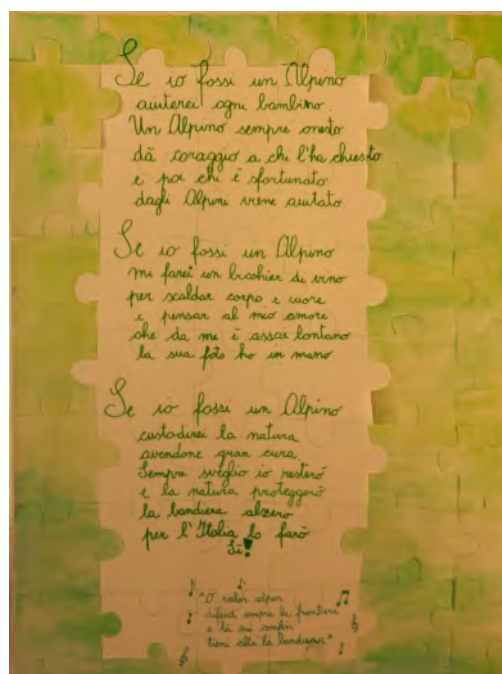 Se io fossi un Alpino
aiuterei ogni bambino.
Un Alpino sempre onesto
dà coraggio a chi l'ha chiesto
e poi chi è sfortunato
dagli Alpini viene aiutato
Se io fossi un Alpino
mi farei un bicchier di vino
per scaldar corpo e cuore
e pensar al mio amore
che da me è assai lontano
la sua foto ho in mano
Se io fossi un Alpino
custodirei la natura
avendone gran cura.
Sempre sveglio io resterò
e la natura proteggerò
la bandiera alzerò
per l'Italia lo farò
Sì!
"O valor alpin
difendi sempre la frontiera
e là sui confin
tieni alta la bandiera"